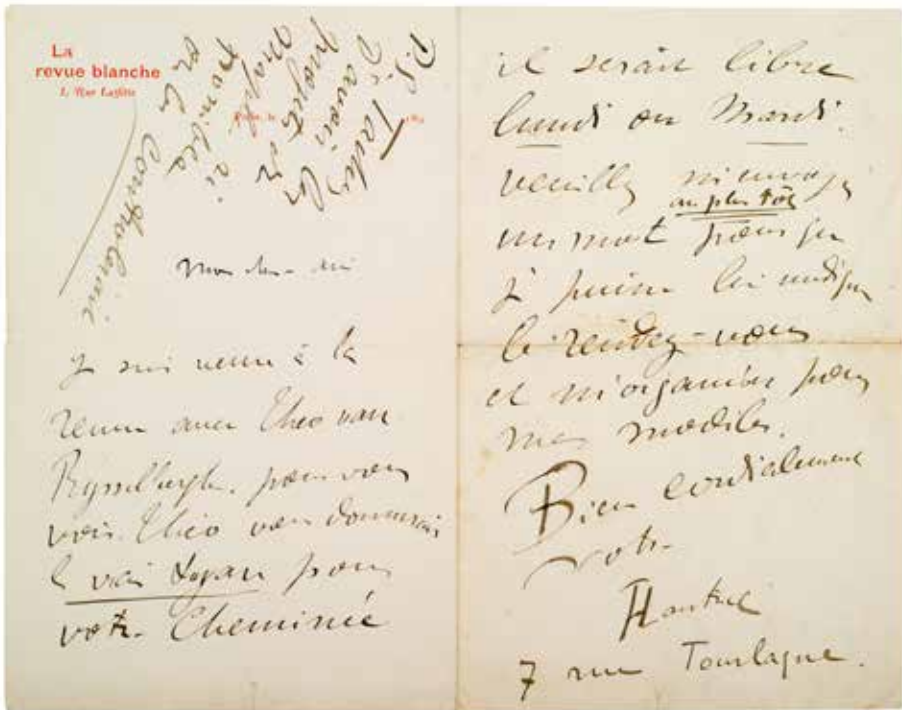 La
revue blanche
1, Rue Laffitte
Paris, le 189
P.S. Tachez
d'avoir les
projets de
Maple ai
promiles
et la
Mon cher ami
Je suis venu à la
revue avec Theo van
Rysselberghe. pour vous
voir. Theo vous donnerais
le vrai tyau pour
votre Cheminée
il serait libre
lundi ou Mardi.
veuillez m'envoyer
au plus tôt
un mot pour que
je puisse lui indiquer
le rendez-vous
et m'organiser pour
mes modèles.
Bien cordialement
votre
HLautrec
7 rue Tourlaque.